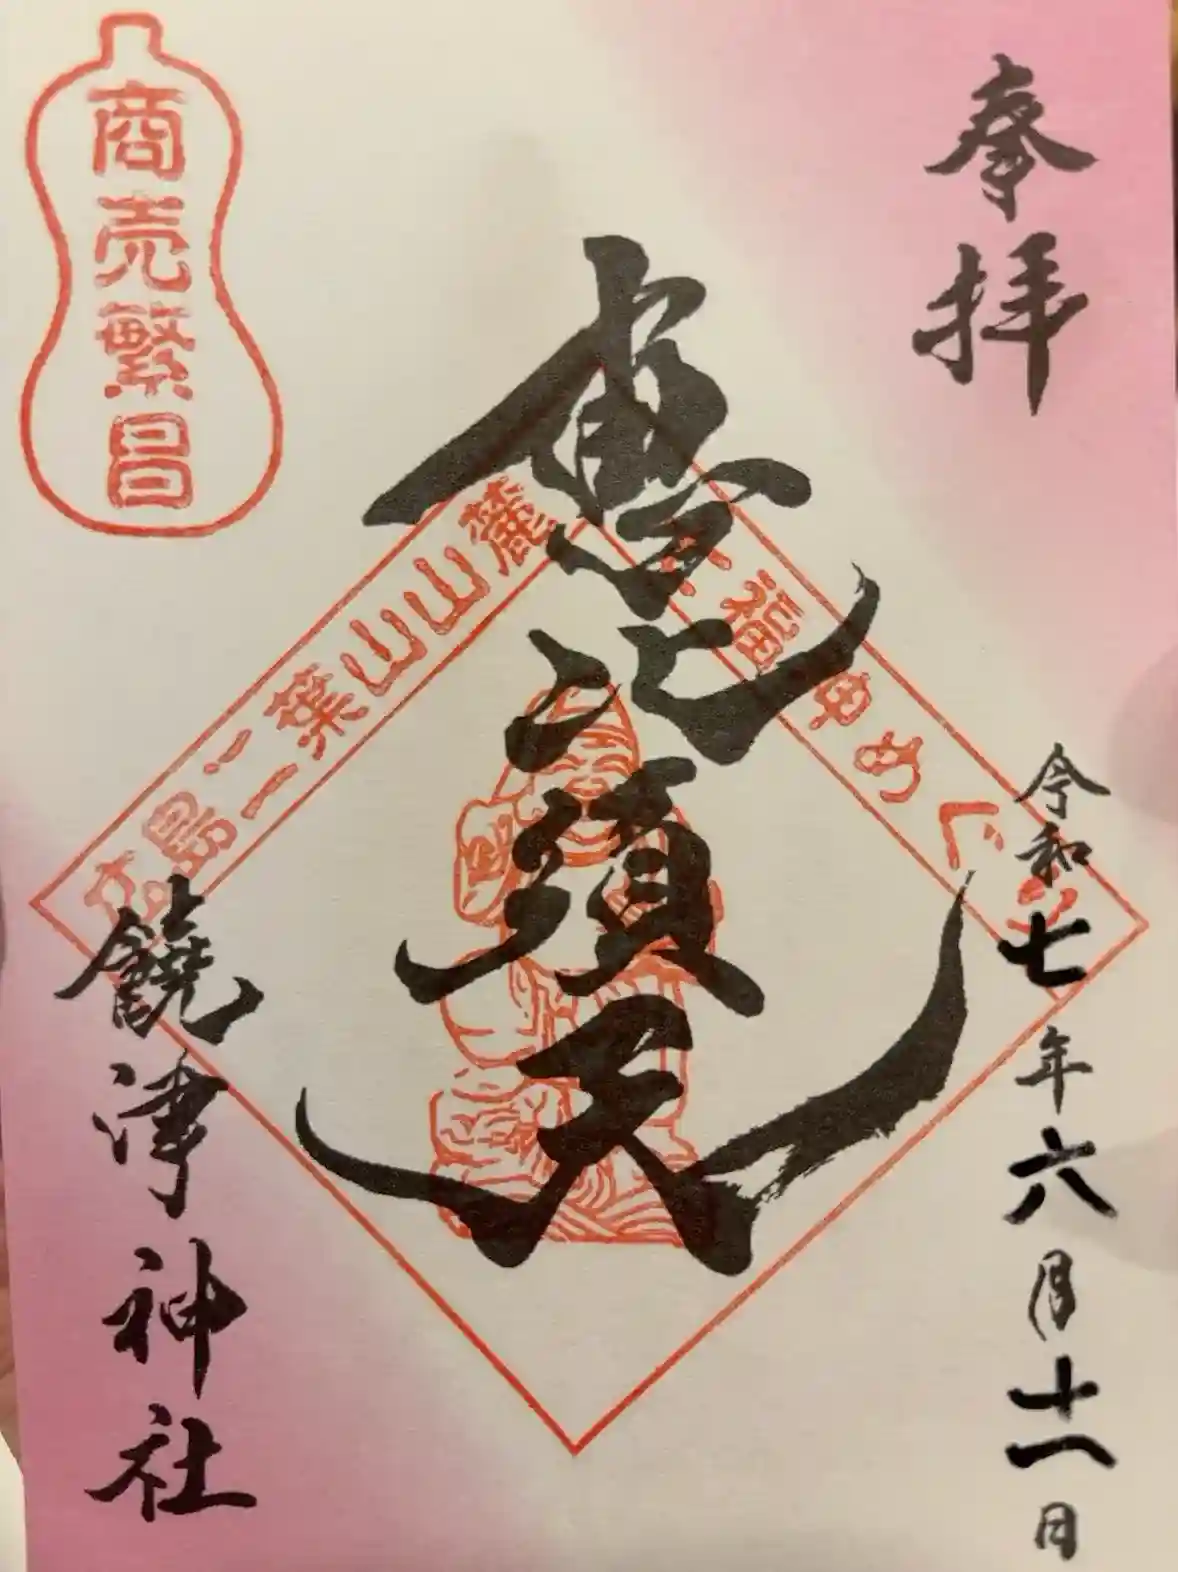 奉拝
令和七年六月十一日
恵比須天
七福神めぐり
広島二葉山山麓
商売繁昌
饒津神社